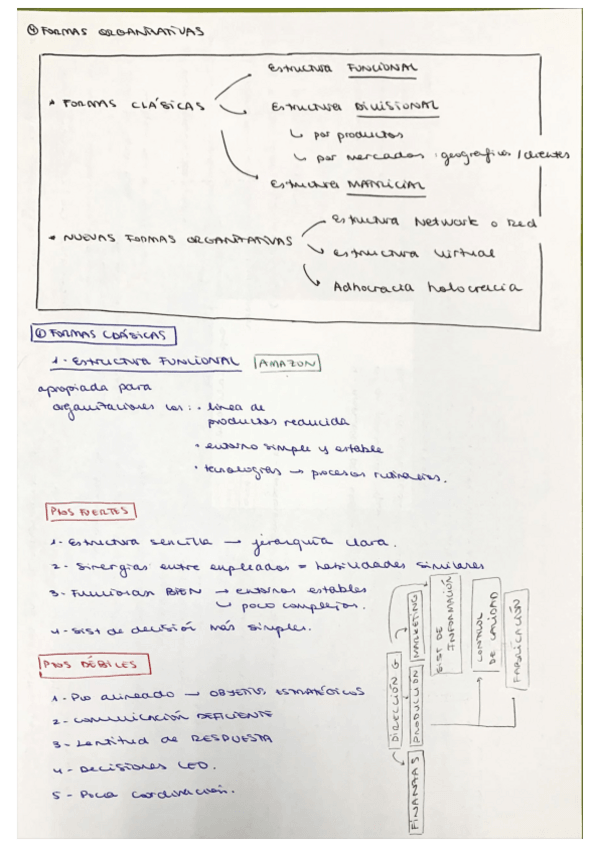 ④ FORMAS ORGANITATIVAS
* FORMAS CLÁSICAS
Estructura FUNCIONAL
Estructura DIVISIONAL
↳ por productos
↳ por mercados : geográficos / clientes
Estructura MATRICIAL
* NUEVAS FORMAS ORGANITATIVAS
Estructura Network o Red
Estructura Virtual
Adhocracia holocracia
① FORMAS CLÁSICAS
1- Estructura FUNCIONAL AMAZON
apropiada para
organitaciones con: • linea de
productos reducida
• entorno simple y estable
• tecnologías → procesos rutinarios.
PTOS FUERTES
1- Estructura sencilla → jerarquía clara.
2- Sinergias entre empleados = habilidades similares
3- Funcionan BIEN → entornos estables
↳ poco complejos.
4- Sist de decisión más simples.
PTOS DÉBILES
1- alineado → OBJETIVOS ESTRATÉGICOS
2- Comunicación DEFICIENTE
3- Lentitud de RESPUESTA
4- Decisiones CEO.
5- Poca coordinación.
DIRECCIÓN G
FINANZAS
PRODUCCIÓN
MARKETING
SIST DE
INFORMACIÓN
CONTROL
DE CALIDAD
FABRICACIÓN